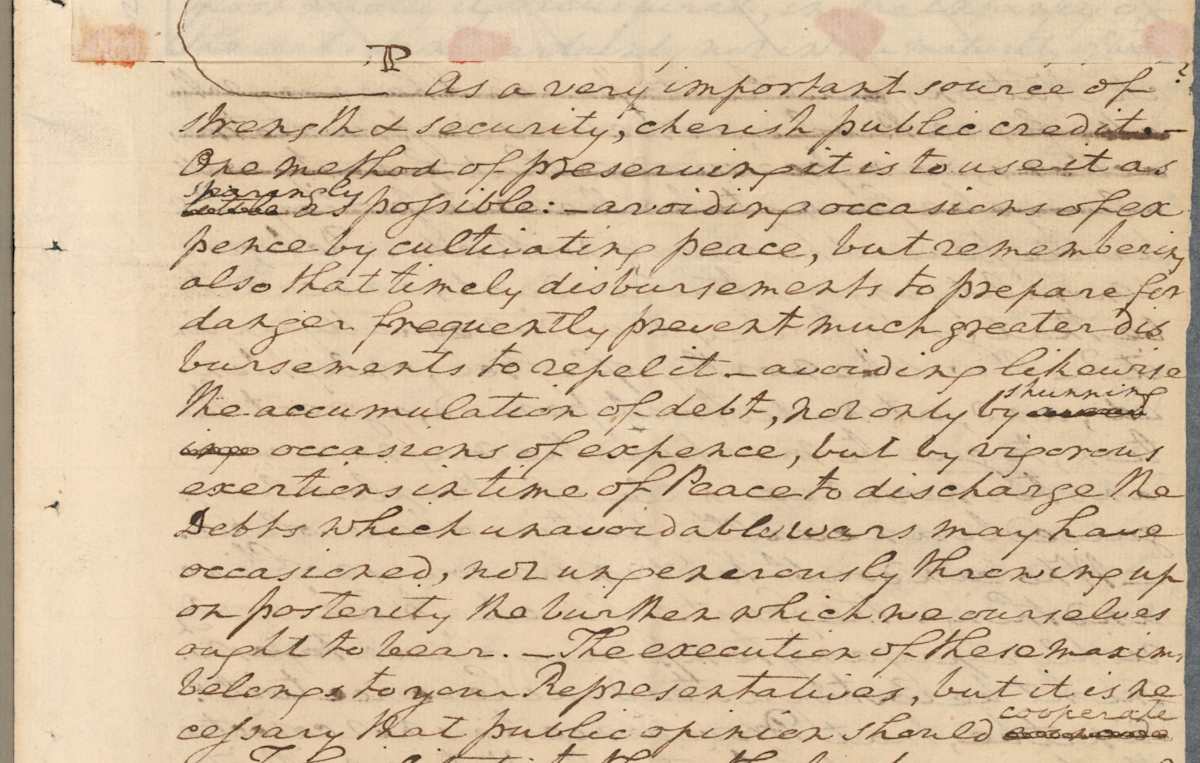 P
As a very important source of
strength & security, cherish public credit.—
One method of preserving it is to use it as
sparingly
little as possible: – avoiding occasions of ex
pence by cultivating peace, but remembering
also that timely disbursements to prepare for
danger frequently prevent much greater dis
bursements to repel it – avoiding likewise
the accumulation of debt, not only by shunning
occasions of expence, but by vigorous
exertions in time of Peace to discharge the
Debts which unavoidable wars may have
occasioned, not ungenerously throwing up
on posterity the burthen which we ourselves
ought to bear. – The execution of these maxims
belongs to your Representatives, but it is ne
cessary that public opinion should cooperate